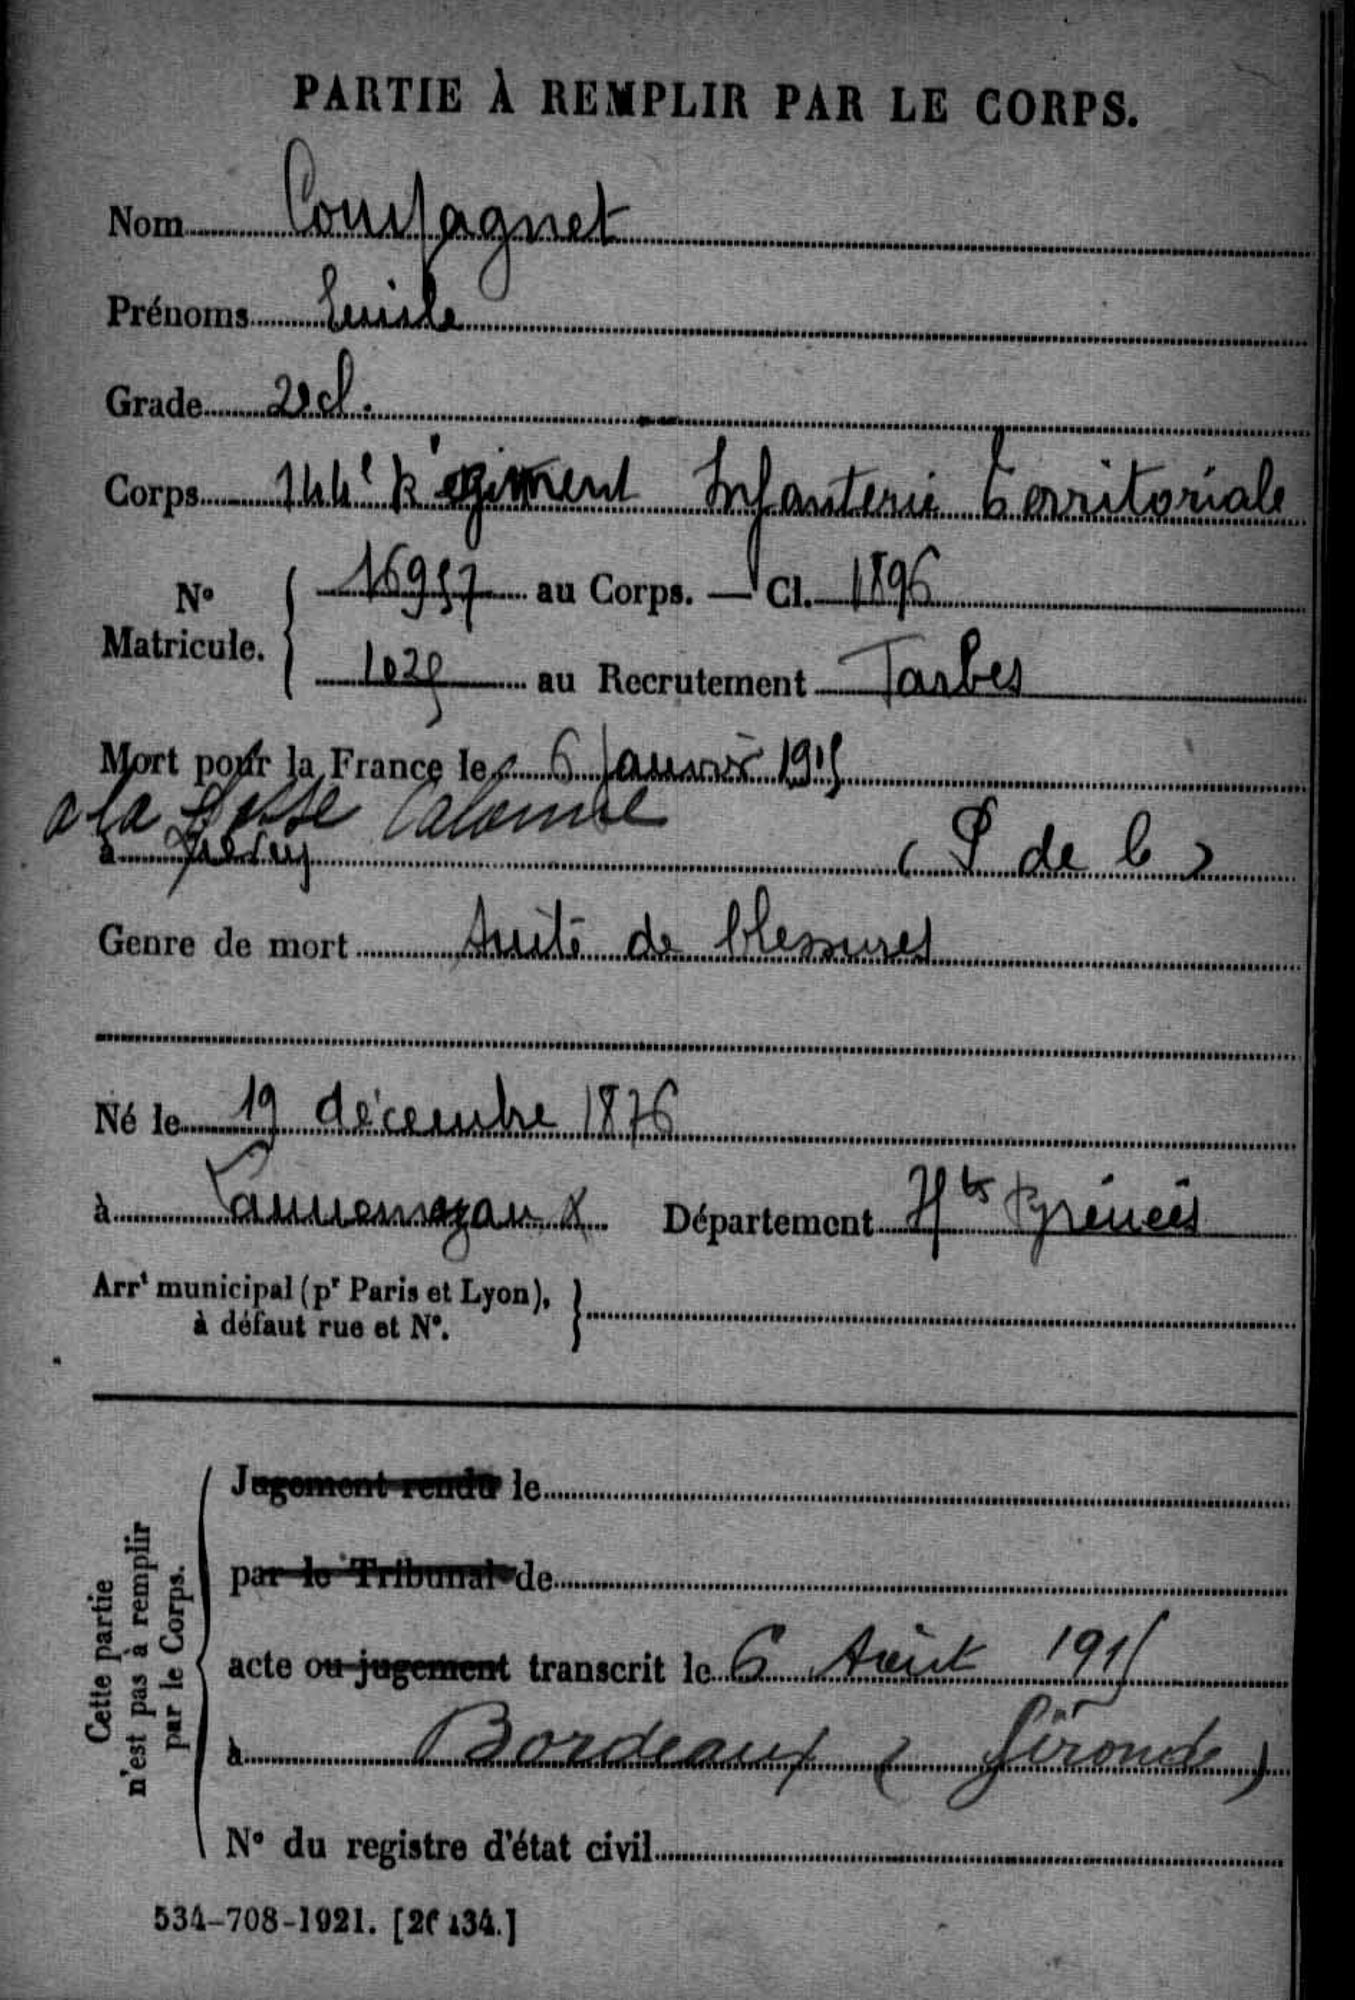 PARTIE À REMPLIR PAR LE CORPS.
Nom Compagnet
Prénoms Emile
Grade 2e cl.
Corps 144e Régiment Infanterie Territoriale
No Matricule. 16957 au Corps. — Cl. 1896
1029 au Recrutement Tarbes
Mort pour la France le 6 Janvier 1915
a la fosse Calonne
à (P de C)
Genre de mort Suite de blessures
Né le 19 décembre 1876
à Lannemezan Département Htes Pyrénées
Arrt municipal (pr Paris et Lyon),
à défaut rue et No.
Cette partie
n'est pas à remplir
par le Corps.
Jugement rendu le
par le Tribunal de
acte ou jugement transcrit le 6 Août 1915
à Bordeaux (Gironde)
No du registre d'état civil
534-708-1921. [26134.]